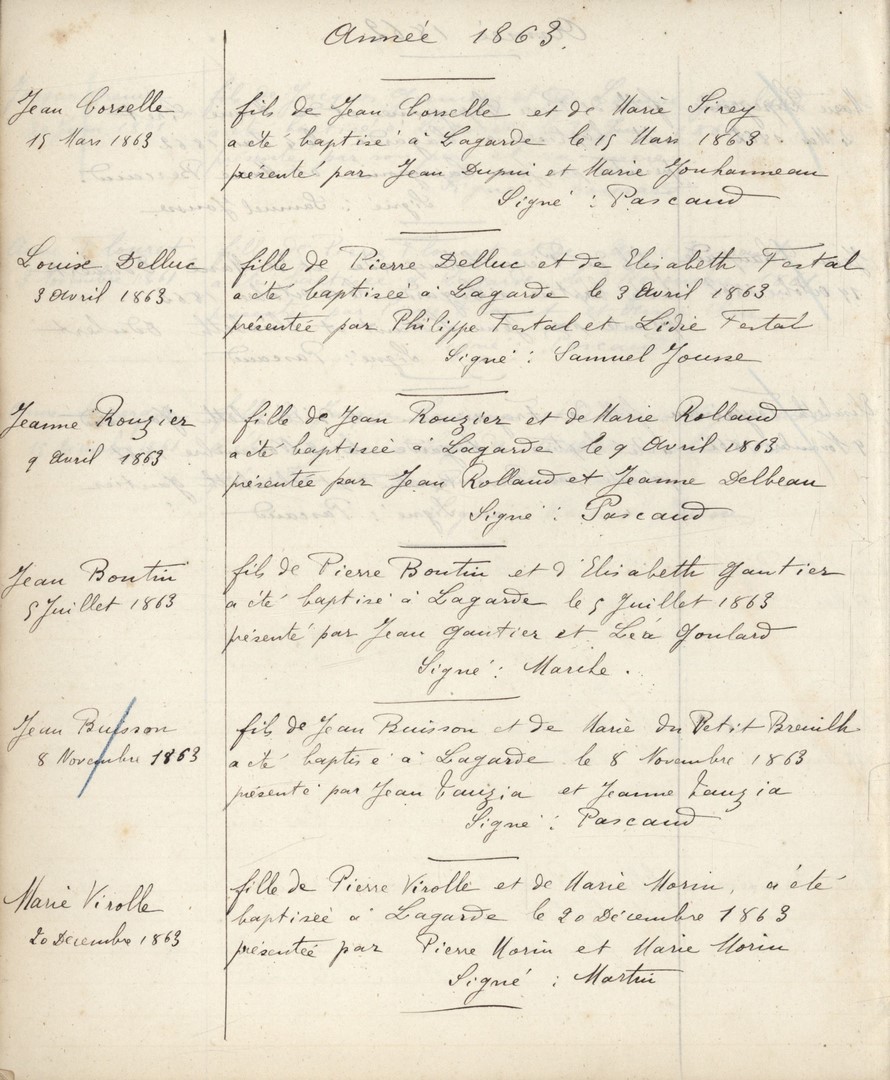 Année 1863.
Jean Corselle
15 Mars 1863
fils de Jean Corselle et de Marie Sirey
a été baptisé à Lagarde le 15 Mars 1863.
présenté par Jean Dupui et Marie Jouhanneau
Signé : Pascaud
Louise Delluc
3 Avril 1863
fille de Pierre Delluc et de Elisabeth Festal
a été baptisée à Lagarde le 3 Avril 1863
présentée par Philippe Festal et Lidie Festal
Signé : Samuel Jousse
Jeanne Rouzier
9 Avril 1863
fille de Jean Rouzier et de Marie Rolland
a été baptisée à Lagarde le 9 Avril 1863
présentée par Jean Rolland et Jeanne Delbeau
Signé : Pascaud
Jean Boutin
5 Juillet 1863
fils de Pierre Boutin et d'Elisabeth Gautier
a été baptisé à Lagarde le 5 Juillet 1863
présenté par Jean Gautier et Léa Goulard
Signé :
Jean Buisson
8 Novembre 1863
fils de Jean Buisson et de Marie du Petit Breuilh
a été baptisé à Lagarde le 8 Novembre 1863
présenté par Jean Tauzia et Jeanne Tauzia
Signé : Pascaud
Marie Virolle
20 Decembre 1863
fille de Pierre Virolle et de Marie Morin, a été
baptisée à Lagarde le 20 Décembre 1863
présentée par Pierre Morin et Marie Morin
Signé : Martin